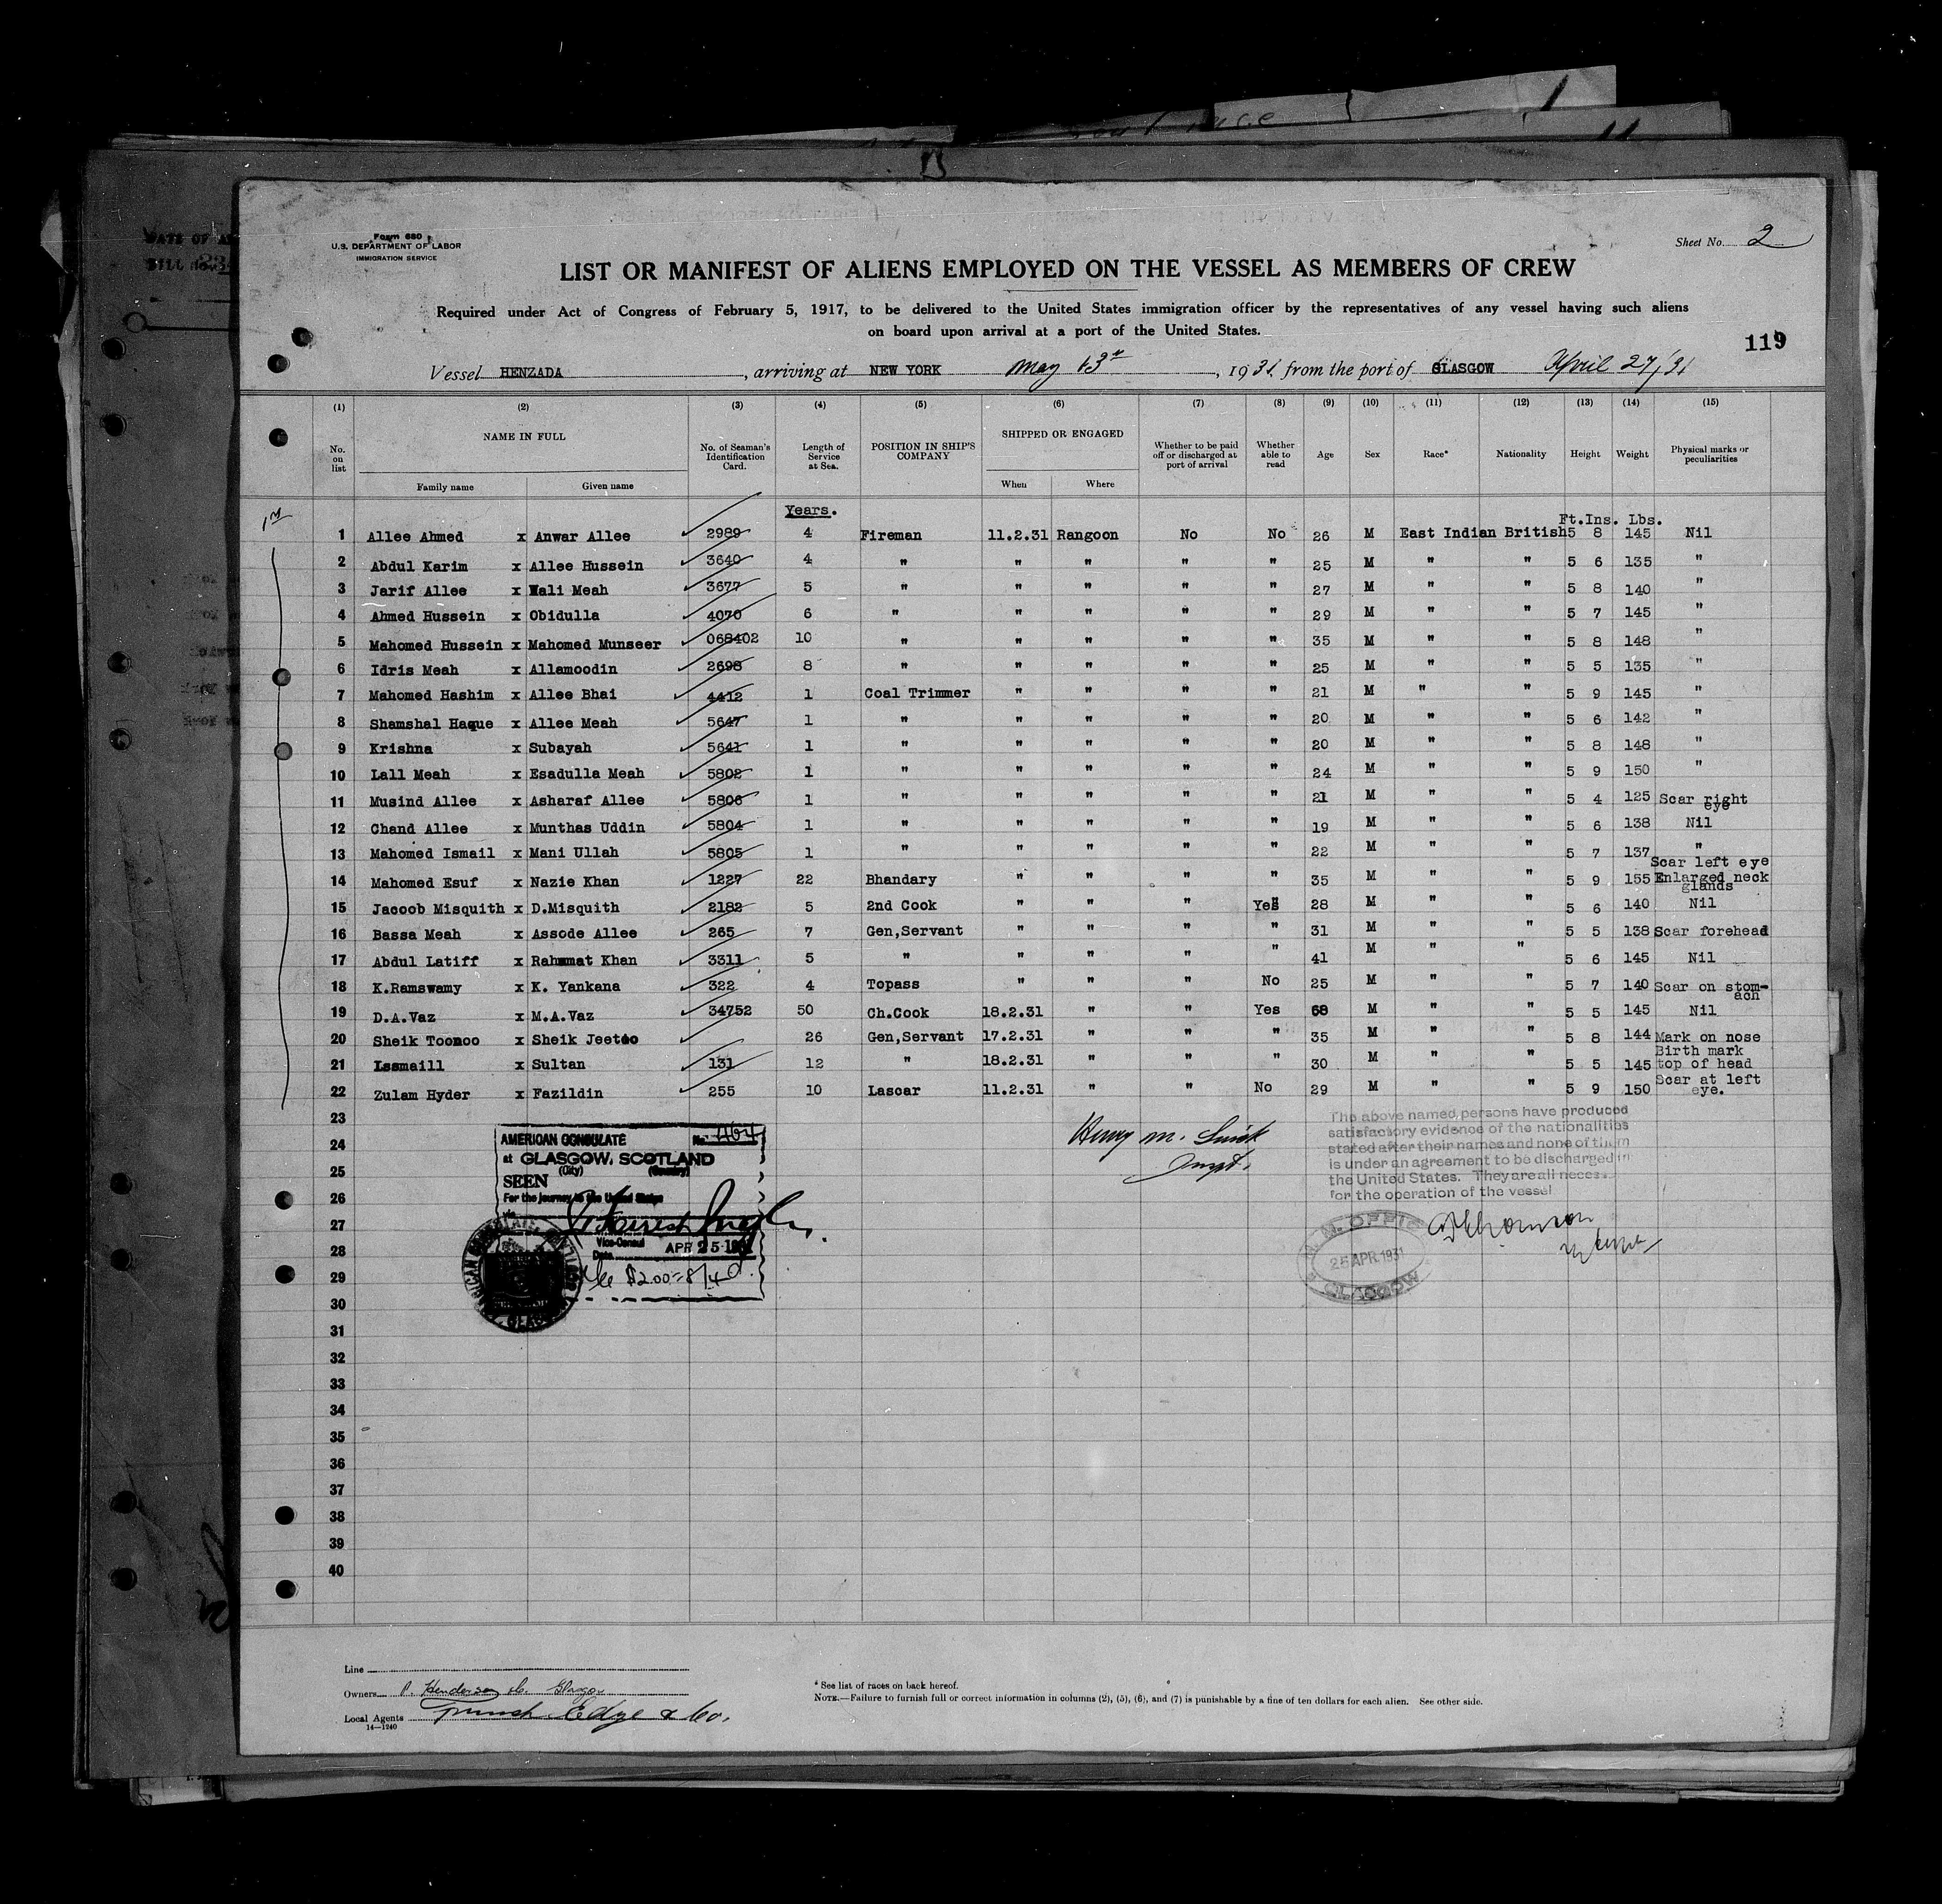 Form 680
U.S. DEPARTMENT OF LABOR
IMMIGRATION SERVICE
Sheet No. 2
LIST OR MANIFEST OF ALIENS EMPLOYED ON THE VESSEL AS MEMBERS OF CREW
Required under Act of Congress of February 5, 1917, to be delivered to the United States immigration officer by the representatives of any vessel having such aliens
on board upon arrival at a port of the United States.
119
Vessel HENZADA, arriving at NEW YORK May 13th, 1931, from the port of GLASGOW April 27/31
(1) (2) (3) (4) (5) (6) (7) (8) (9) (10) (11) (12) (13) (14) (15)
No. on list NAME IN FULL Family name Given name No. of Seaman's Identification Card. Length of Service at Sea. POSITION IN SHIP'S COMPANY SHIPPED OR ENGAGED When Where Whether to be paid off or discharged at port of arrival Whether able to read Age Sex Race* Nationality Height Weight Physical marks or peculiarities
Years. Ft.Ins. Lbs.
1 Allee Ahmed x Anwar Allee 2989 4 Fireman 11.2.31 Rangoon No No 26 M East Indian British 5 8 145 Nil
2 Abdul Karim x Allee Hussein 3640 4 " " " " " 25 M " " 5 6 135 "
3 Jarif Allee x Wali Meah 3677 5 " " " " " 27 M " " 5 8 140 "
4 Ahmed Hussein x Obidulla 4070 6 " " " " " 29 M " " 5 7 145 "
5 Mahomed Hussein x Mahomed Munseer 068402 10 " " " " " 35 M " " 5 8 148 "
6 Idris Meah x Allamoodin 2698 8 " " " " " 25 M " " 5 5 135 "
7 Mahomed Hashim x Allee Bhai 4412 1 Coal Trimmer " " " " 21 M " " 5 9 145 "
8 Shamshal Haque x Allee Meah 5647 1 " " " " " 20 M " " 5 6 142 "
9 Krishna x Subayah 5641 1 " " " " " 20 M " " 5 8 148 "
10 Lall Meah x Esadulla Meah 5802 1 " " " " " 24 M " " 5 9 150 "
11 Musind Allee x Asharaf Allee 5806 1 " " " " " 21 M " " 5 4 125 Scar right eye
12 Chand Allee x Munthas Uddin 5804 1 " " " " " 19 M " " 5 6 138 Nil
13 Mahomed Ismail x Mani Ullah 5805 1 " " " " " 22 M " " 5 7 137 "
14 Mahomed Esuf x Nazie Khan 1227 22 Bhandary " " " " 35 M " " 5 9 155 Scar left eye Enlarged neck glands
15 Jacoob Misquith x D.Misquith 2182 5 2nd Cook " " " Yes 28 M " " 5 6 140 Nil
16 Bassa Meah x Assode Allee 265 7 Gen,Servant " " " " 31 M " " 5 5 138 Scar forehead
17 Abdul Latiff x Rahmmat Khan 3311 5 " " " " " 41 M " " 5 6 145 Nil
18 K.Ramswamy x K. Yankana 322 4 Topass " " " No 25 M " " 5 7 140 Scar on stom-ach
19 D.A.Vaz x M.A.Vaz 34752 50 Ch.Cook 18.2.31 " " Yes 68 M " " 5 5 145 Nil
20 Sheik Toonoo x Sheik Jeetoo 26 Gen,Servant 17.2.31 " " " 35 M " " 5 8 144 Mark on nose
21 Issmaill x Sultan 131 12 " 18.2.31 " " " 30 M " " 5 5 145 Birth mark top of head
22 Zulam Hyder x Fazildin 255 10 Lascar 11.2.31 " " No 29 M " " 5 9 150 Scar at left eye.
23
24
25
26
27
28
29
30
31
32
33
34
35
36
37
38
39
40
AMERICAN CONSULATE No. 464
at GLASGOW, SCOTLAND
(City) (Country)
SEEN
For the journey to the United States
Vice-Consul
Date APR 25 1931
Fee $2.00 = 8/4
Henry M.
The above named persons have produced
satisfactory evidence of the nationalities
stated after their names and none of them
is under an agreement to be discharged in
the United States. They are all
for the operation of the vessel
25 APR 1931
GLASGOW
Line
Owners P. Henderson Co. Glasgow
Local Agents Edye & Co.
14—1240
* See list of races on back hereof.
NOTE.—Failure to furnish full or correct information in columns (2), (5), (6), and (7) is punishable by a fine of ten dollars for each alien. See other side.